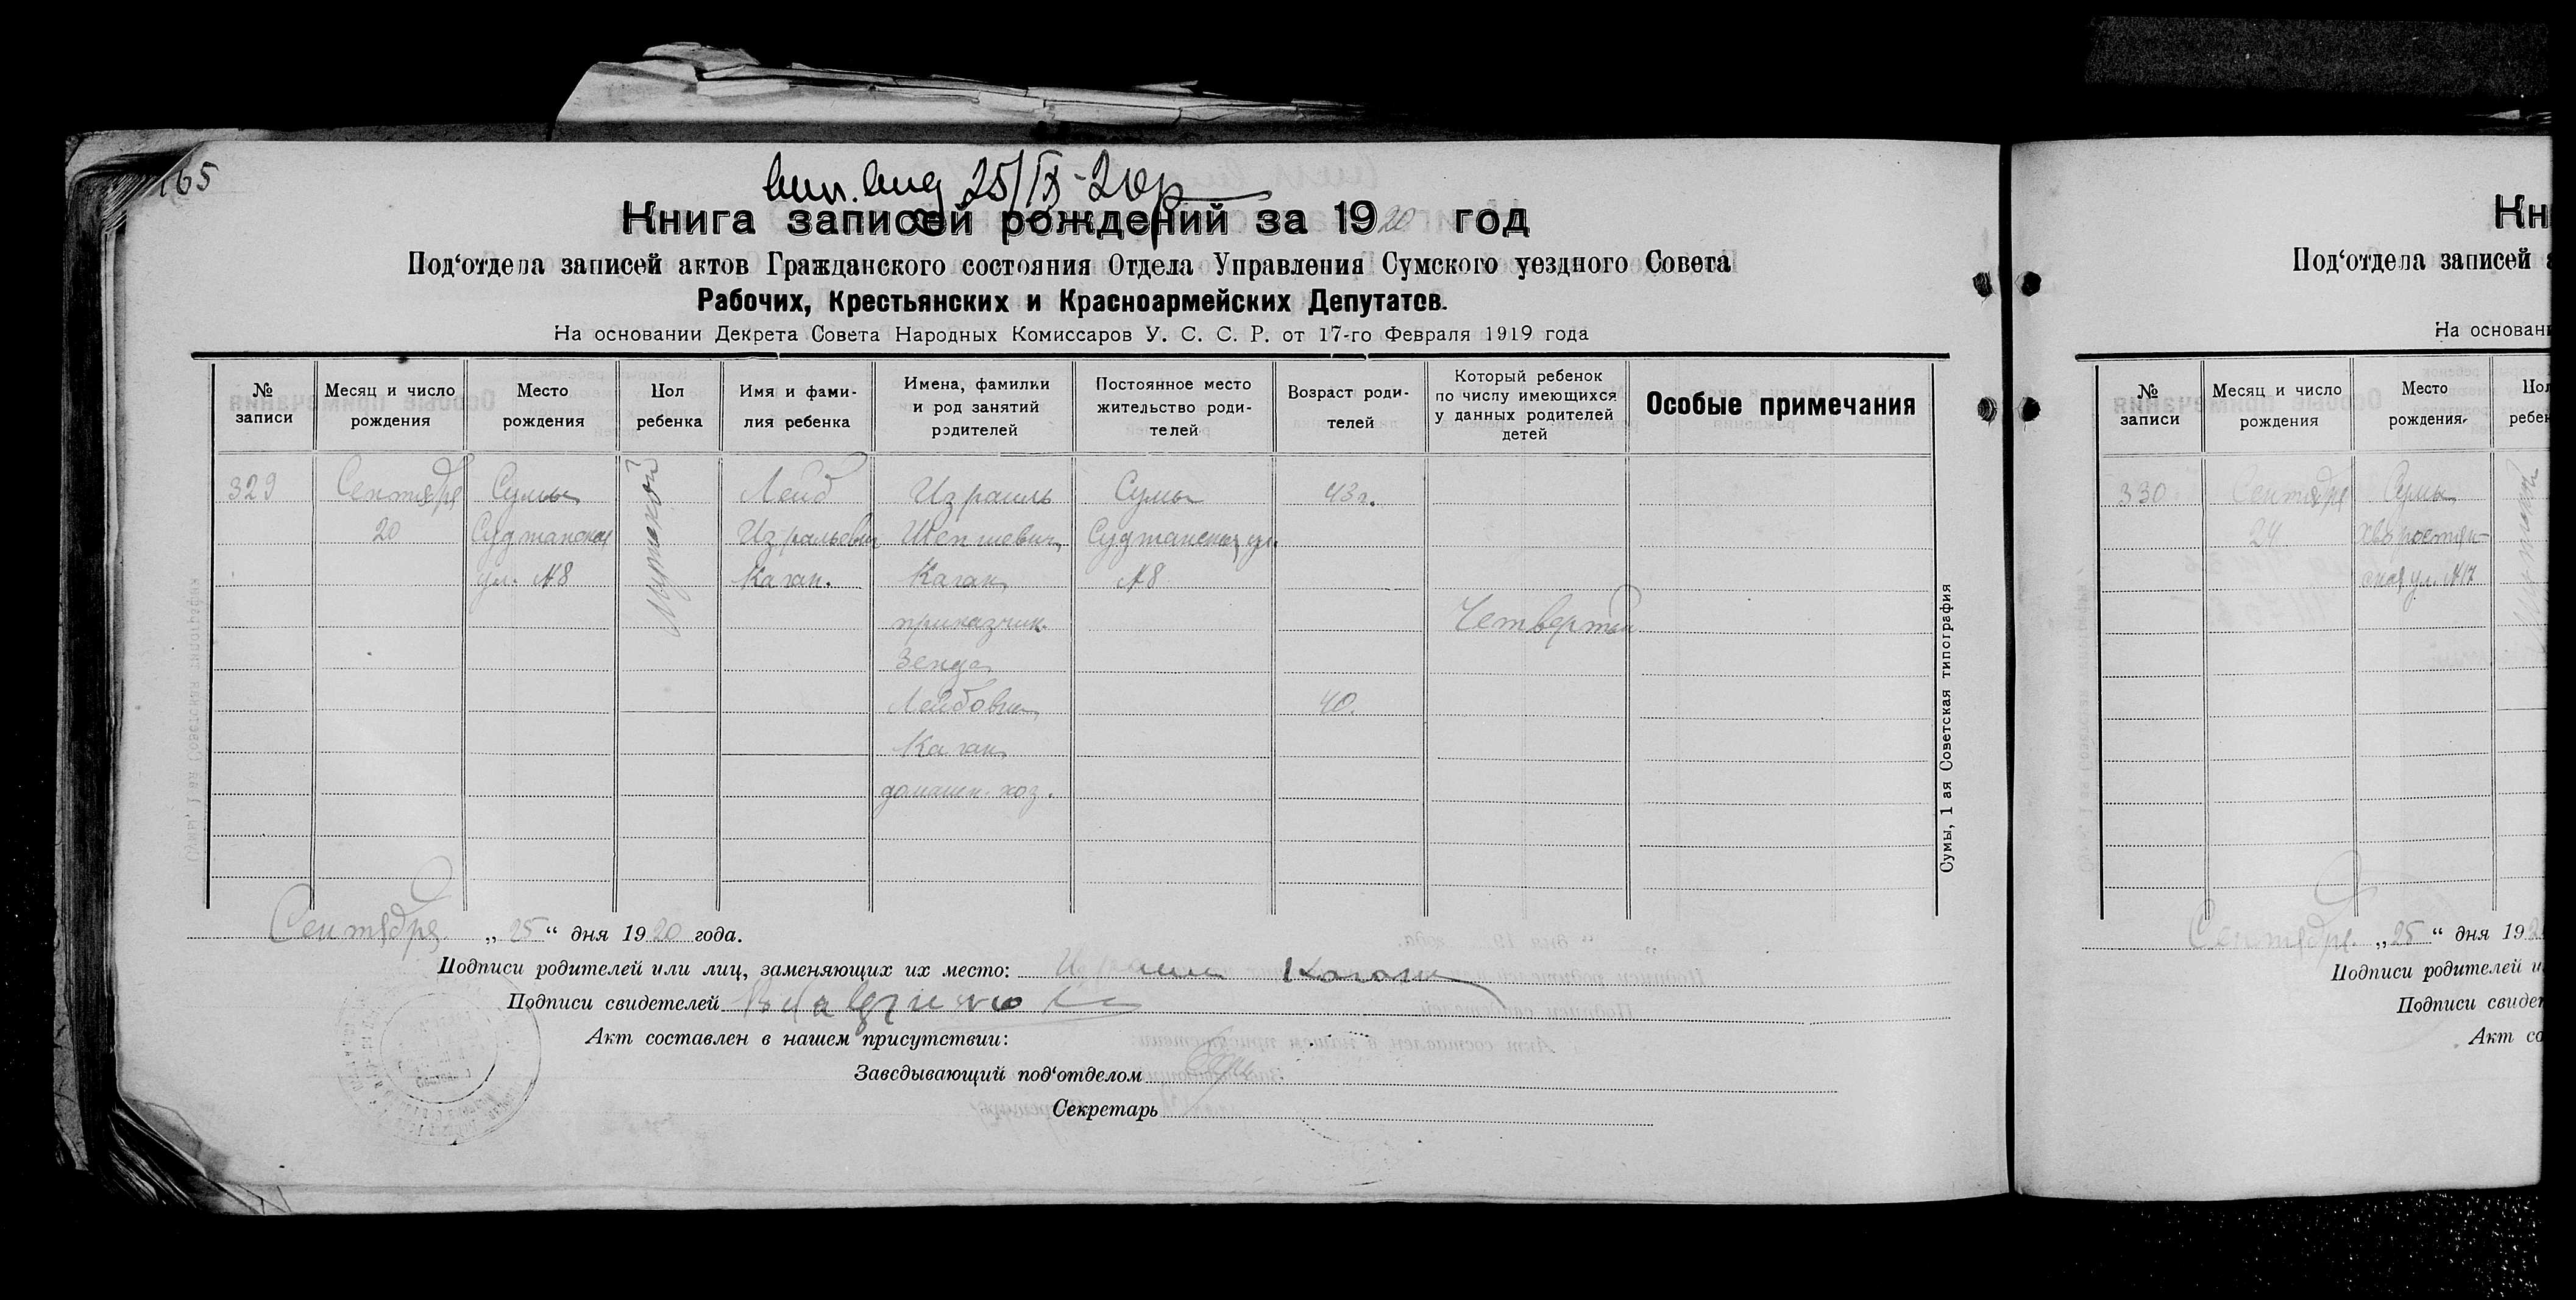 165
25/IX-20 р
Книга записей рождений за 1920 год
Под‘отдела записей актов Гражданского состояния Отдела Управления Сумского уездного Совета
Рабочих, Крестьянских и Красноармейских Депутатов.
На основании Декрета Совета Народных Комиссаров У. С. С. Р. от 17-го Февраля 1919 года
№ записи
Месяц и число рождения
Место рождения
Пол ребенка
Имя и фами-
лия ребенка
Имена, фамилки
и род занятий
родителей
Постоянное место
жительство роди-
телей
Возраст роди-
телей
Который ребенок
по числу имеющихся
у данных родителей
детей
Особые примечания
329
Сентября
20
Сумы
Суджанская
ул. №8
Мужской
Лейб
Израильевич
Каган.
Израиль
Шепшевич
Каган
приказчик.
Зенда
Лейбовна
Каган
домашн. хоз.
Сумы
Суджанская ул.
№8
43 г.
40.
Четвертый
Сумы, 1 ая Советская типография
Сентября „25“ дня 1920 года.
Подписи родителей или лиц, заменяющих их место: Израиль Каган
Подписи свидетелей
Акт составлен в нашем присутствии:
Заведывающий под‘отделом
Секретарь
Кн
Под‘отдела записей а
На основан
№ записи
Месяц и число рождения
Место рождения
Пол
ребен
330
Сентября
24
Сумы
ская ул. №17
Мужской
Сентября „25“ дня 192
Подписи родителей и
Подписи свидет
Акт со